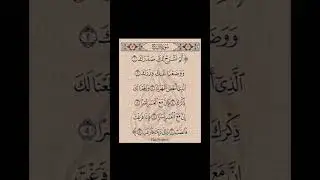 أَلَمْ نَشْرَحْ لَكَ صَدْرَكَ ١
وَوَضَعْنَا عَنكَ وِزْرَكَ ٢
الَّذِي أَنقَضَ ظَهْرَكَ ٣ وَرَفَعْنَا لَكَ
ذِكْرَكَ ٤ فَإِنَّ مَعَ الْعُسْرِ يُسْرًا ٥
إِنَّ مَعَ الْعُسْرِ يُسْرًا ٦ فَإِذَا فَرَغْتَ
فَانصَبْ ٧ وَإِلَىٰ رَبِّكَ فَارْغَب ٨